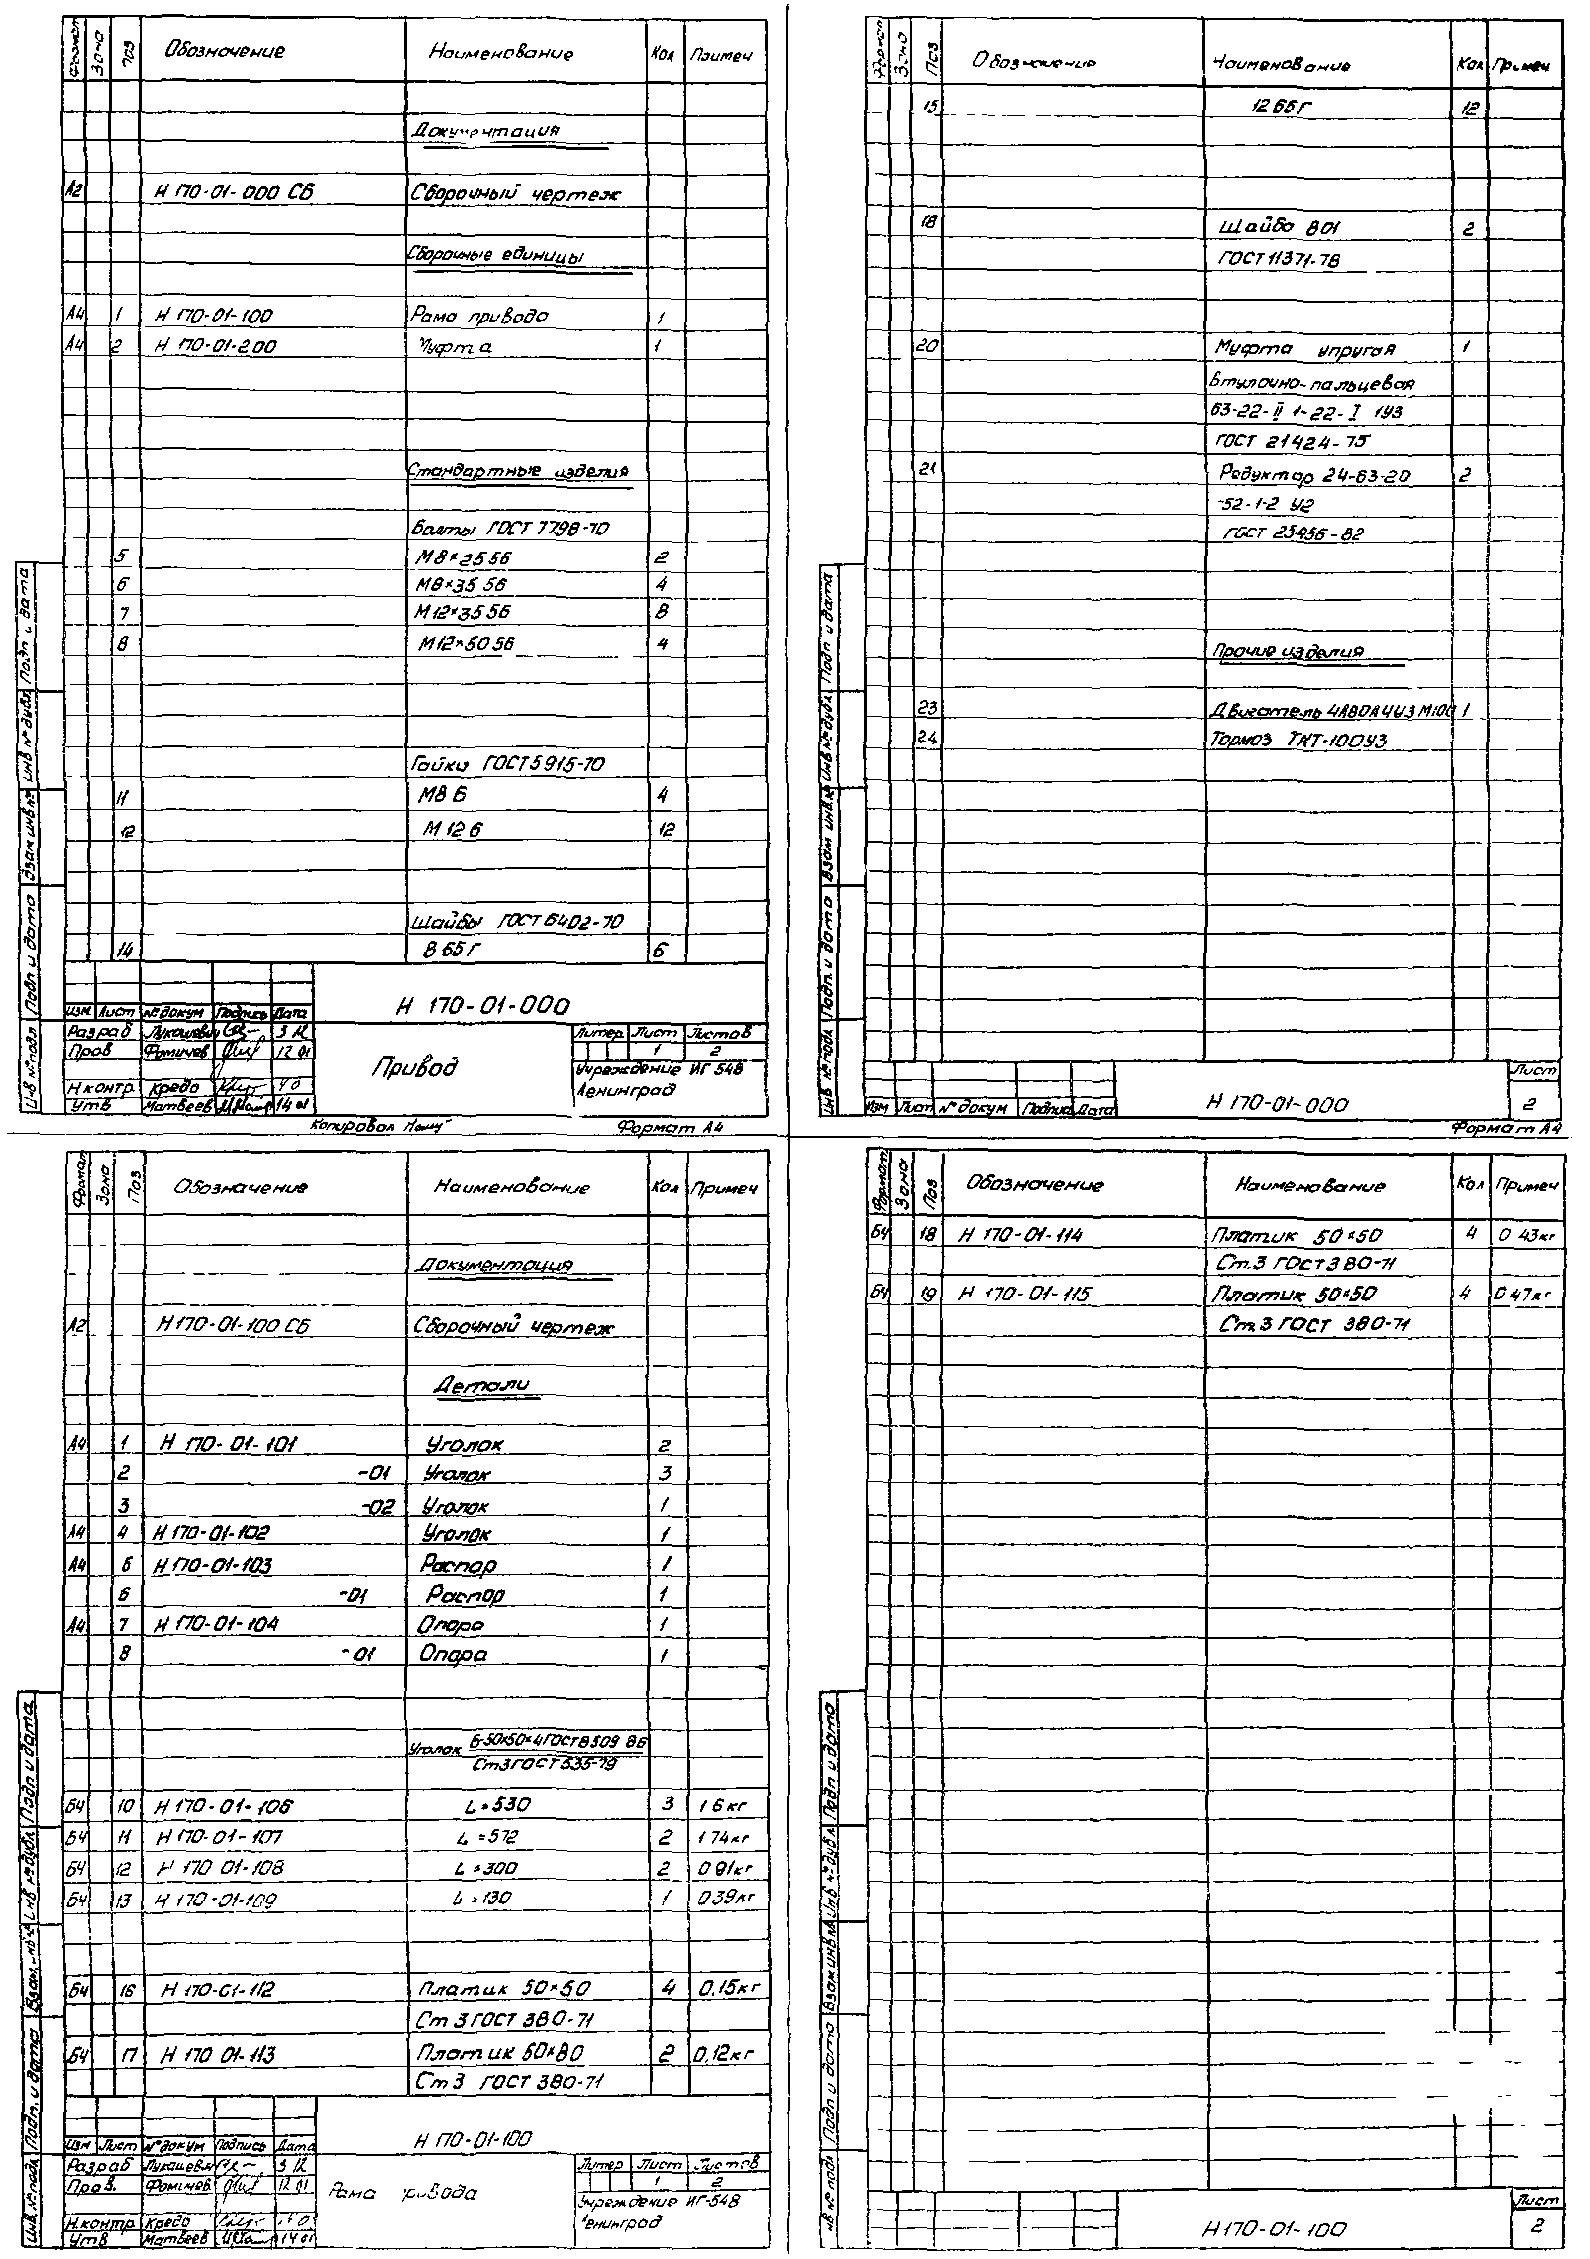 Формат Зона Поз Обозначение Наименование Кол Примеч
Документация
А2 Н 170-01-000 СБ Сборочный чертеж
Сборочные единицы
А4 1 Н 170-01-100 Рама привода 1
А4 2 Н 170-01-200 Муфта 1
Стандартные изделия
Болты ГОСТ 7798-70
5 М8×25 56 2
6 М8×35 56 4
7 М12×35 56 8
8 М12×50 56 4
Гайки ГОСТ 5915-70
11 М8 6 4
12 М 12 6 12
Шайбы ГОСТ 6402-70
14 8 65Г 6
Изм Лист № докум Подпись Дата
Разраб Лукашевич 3 12
Пров Фомичев 12 01
Н контр Кредо
Утв Матвеев 14 01
Н 170-01-000
Привод
Литер Лист Листов
1 2
Учреждение ИГ 548
Ленинград
Инв № подл Подп и дата Взам инв № Инв № дубл Подп и дата
Копировал Формат А4
Формат Зона Поз Обозначение Наименование Кол Примеч
15 12 65Г 12
18 Шайба 8 01 2
ГОСТ 11371-78
20 Муфта упругая 1
втулочно-пальцевая
63-22-II 1-22-I 1У3
ГОСТ 21424-75
21 Редуктор 2Ч-63-20 2
-52-1-2 У2
ГОСТ 25456-82
Прочие изделия
23 Двигатель 4А80А4У3 М100 1
24 Тормоз ТКТ-100У3
Инв № подл Подп. и дата Взам инв № Инв № дубл Подп и дата
Изм Лист № докум Подпись Дата
Н 170-01-000
Лист
2
Формат А4
Формат Зона Поз Обозначение Наименование Кол Примеч
Документация
А2 Н 170-01-100 СБ Сборочный чертеж
Детали
А4 1 Н 170-01-101 Уголок 2
2 -01 Уголок 3
3 -02 Уголок 1
А4 4 Н 170-01-102 Уголок 1
А4 5 Н 170-01-103 Распор 1
6 -01 Распор 1
А4 7 Н 170-01-104 Опора 1
8 -01 Опора 1
Уголок Б-50×50×4 ГОСТ 8509 86
Ст3 ГОСТ 535-79
БЧ 10 Н 170-01-106 L=530 3 1 6 кг
БЧ 11 Н 170-01-107 L=572 2 1 74кг
БЧ 12 Н 170 01-108 L=300 2 0 91кг
БЧ 13 Н 170-01-109 L=130 1 0 39кг
БЧ 16 Н 170-01-112 Платик 50×50 4 0,15кг
Ст 3 ГОСТ 380-71
БЧ 17 Н 170 01-113 Платик 50×80 2 0,12кг
Ст 3 ГОСТ 380-71
Изм Лист № докум Подпись Дата
Разраб Лукашевич 3 12
Пров. Фомичев 12 01
Н.контр Кредо
Утв Матвеев 14 01
Н 170-01-100
Рама привода
Литер Лист Листов
1 2
Учреждение ИГ-548
Ленинград
Инв. № подл Подп. и дата Взам. инв № Инв № дубл Подп и дата
Формат Зона Поз Обозначение Наименование Кол Примеч
БЧ 18 Н 170-01-114 Платик 50×50 4 0 43кг
Ст.3 ГОСТ 380-71
БЧ 19 Н 170-01-115 Платик 50×50 4 0 47кг
Ст.3 ГОСТ 380-71
Инв № подл Подп и дата Взам инв № Инв № дубл Подп и дата
Н 170-01-100
Лист
2